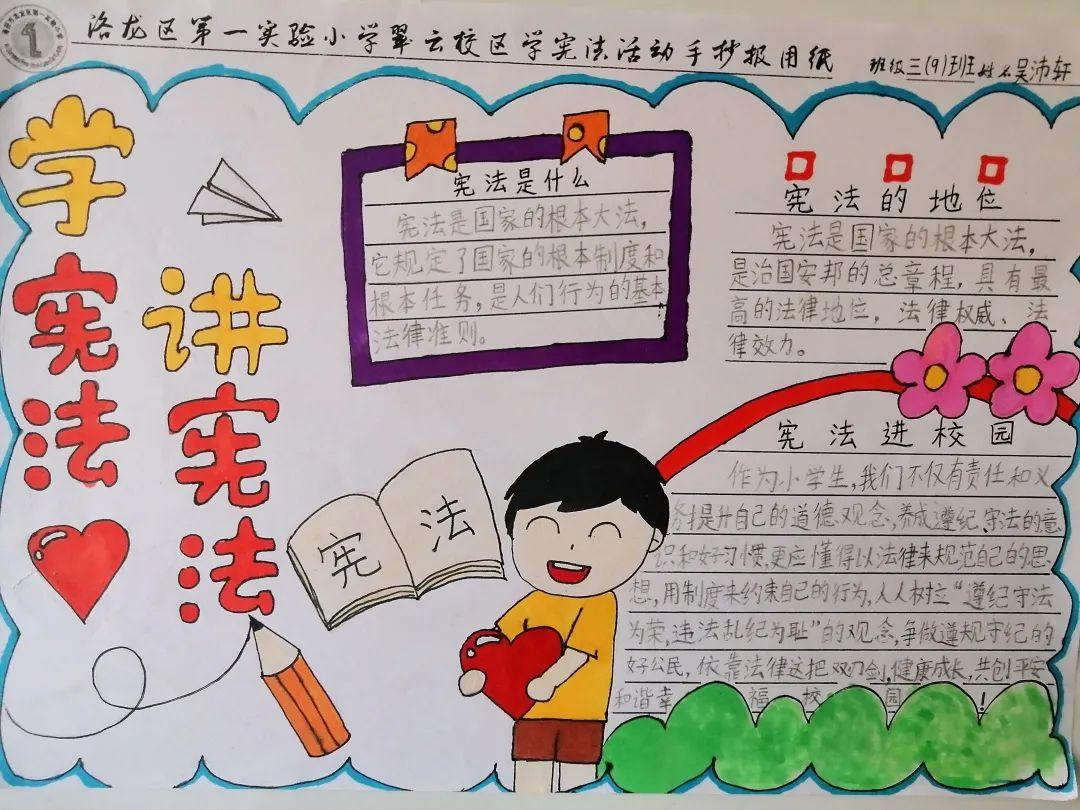 洛龙区第一实验小学翠云校区学宪法活动手抄报用纸
班级三(9)班姓名吴沛轩
学宪法
讲宪法
宪法是什么
宪法是国家的根本大法，
它规定了国家的根本制度和
根本任务，是人们行为的基本
法律准则。
宪法的地位
宪法是国家的根本大法，
是治国安邦的总章程，具有最
高的法律地位，法律权威、法
律效力。
宪法
宪法进校园
作为小学生，我们不仅有责任和义
务提升自己的道德观念，养成遵纪、守法的意
识和好习惯，更应懂得以法律来规范自己的思
想，用制度来约束自己的行为，人人树立“遵纪守法
为荣，违法乱纪为耻”的观念，争做遵规守纪的
好公民，依靠法律这把双刃剑，健康成长，共创平安
和谐幸福校园！